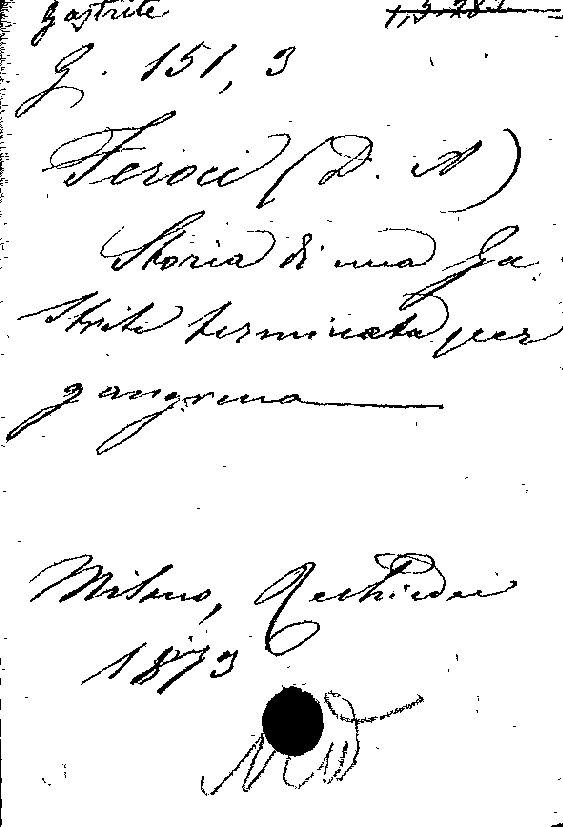 Gastrite
G. 151, 3
Feroci (D. A)
Storia di una Ga
strite terminata per
gangrena
Milano, Rechiedei
1873